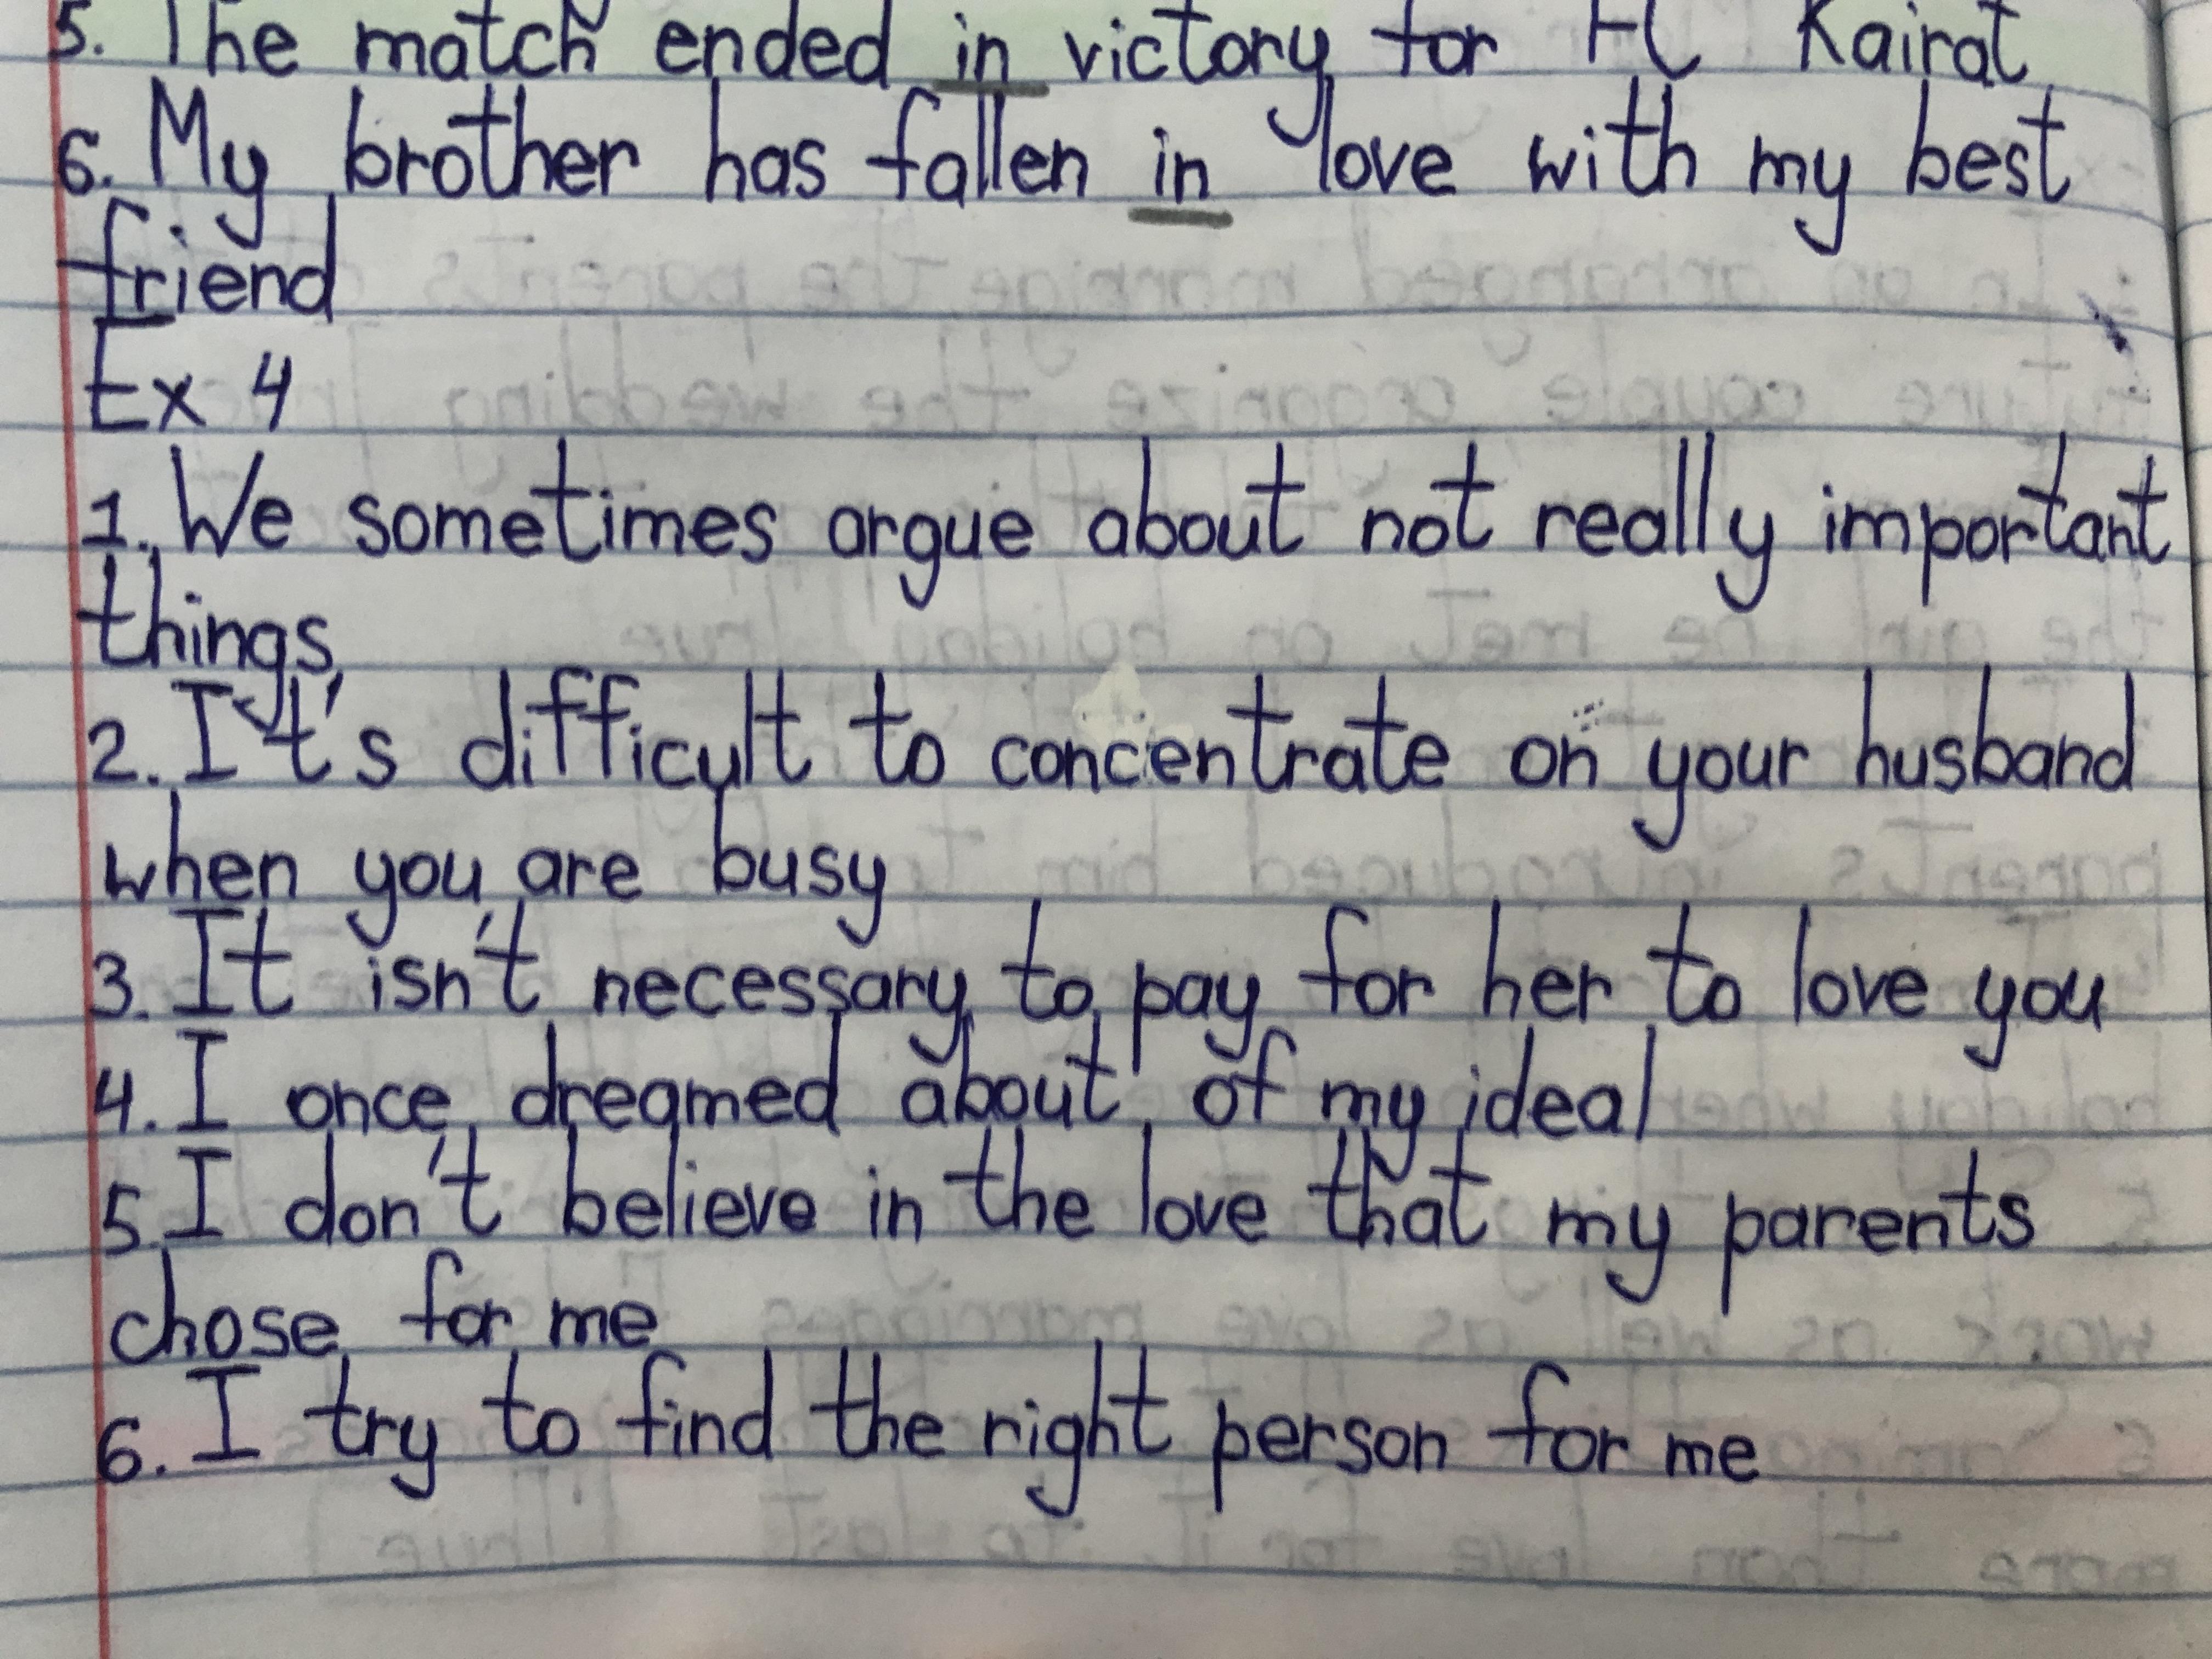 5. The match ended in victory for FC Kairat
6. My brother has fallen in love with my best
friend
Ex 4
1. We sometimes argue about not really important
things
2. It's difficult to concentrate on your husband
when you are busy
3. It isn't necessary to pay for her to love you
4. I once dreamed about of my ideal
5. I don't believe in the love that my parents
chose for me
6. I try to find the right person for me